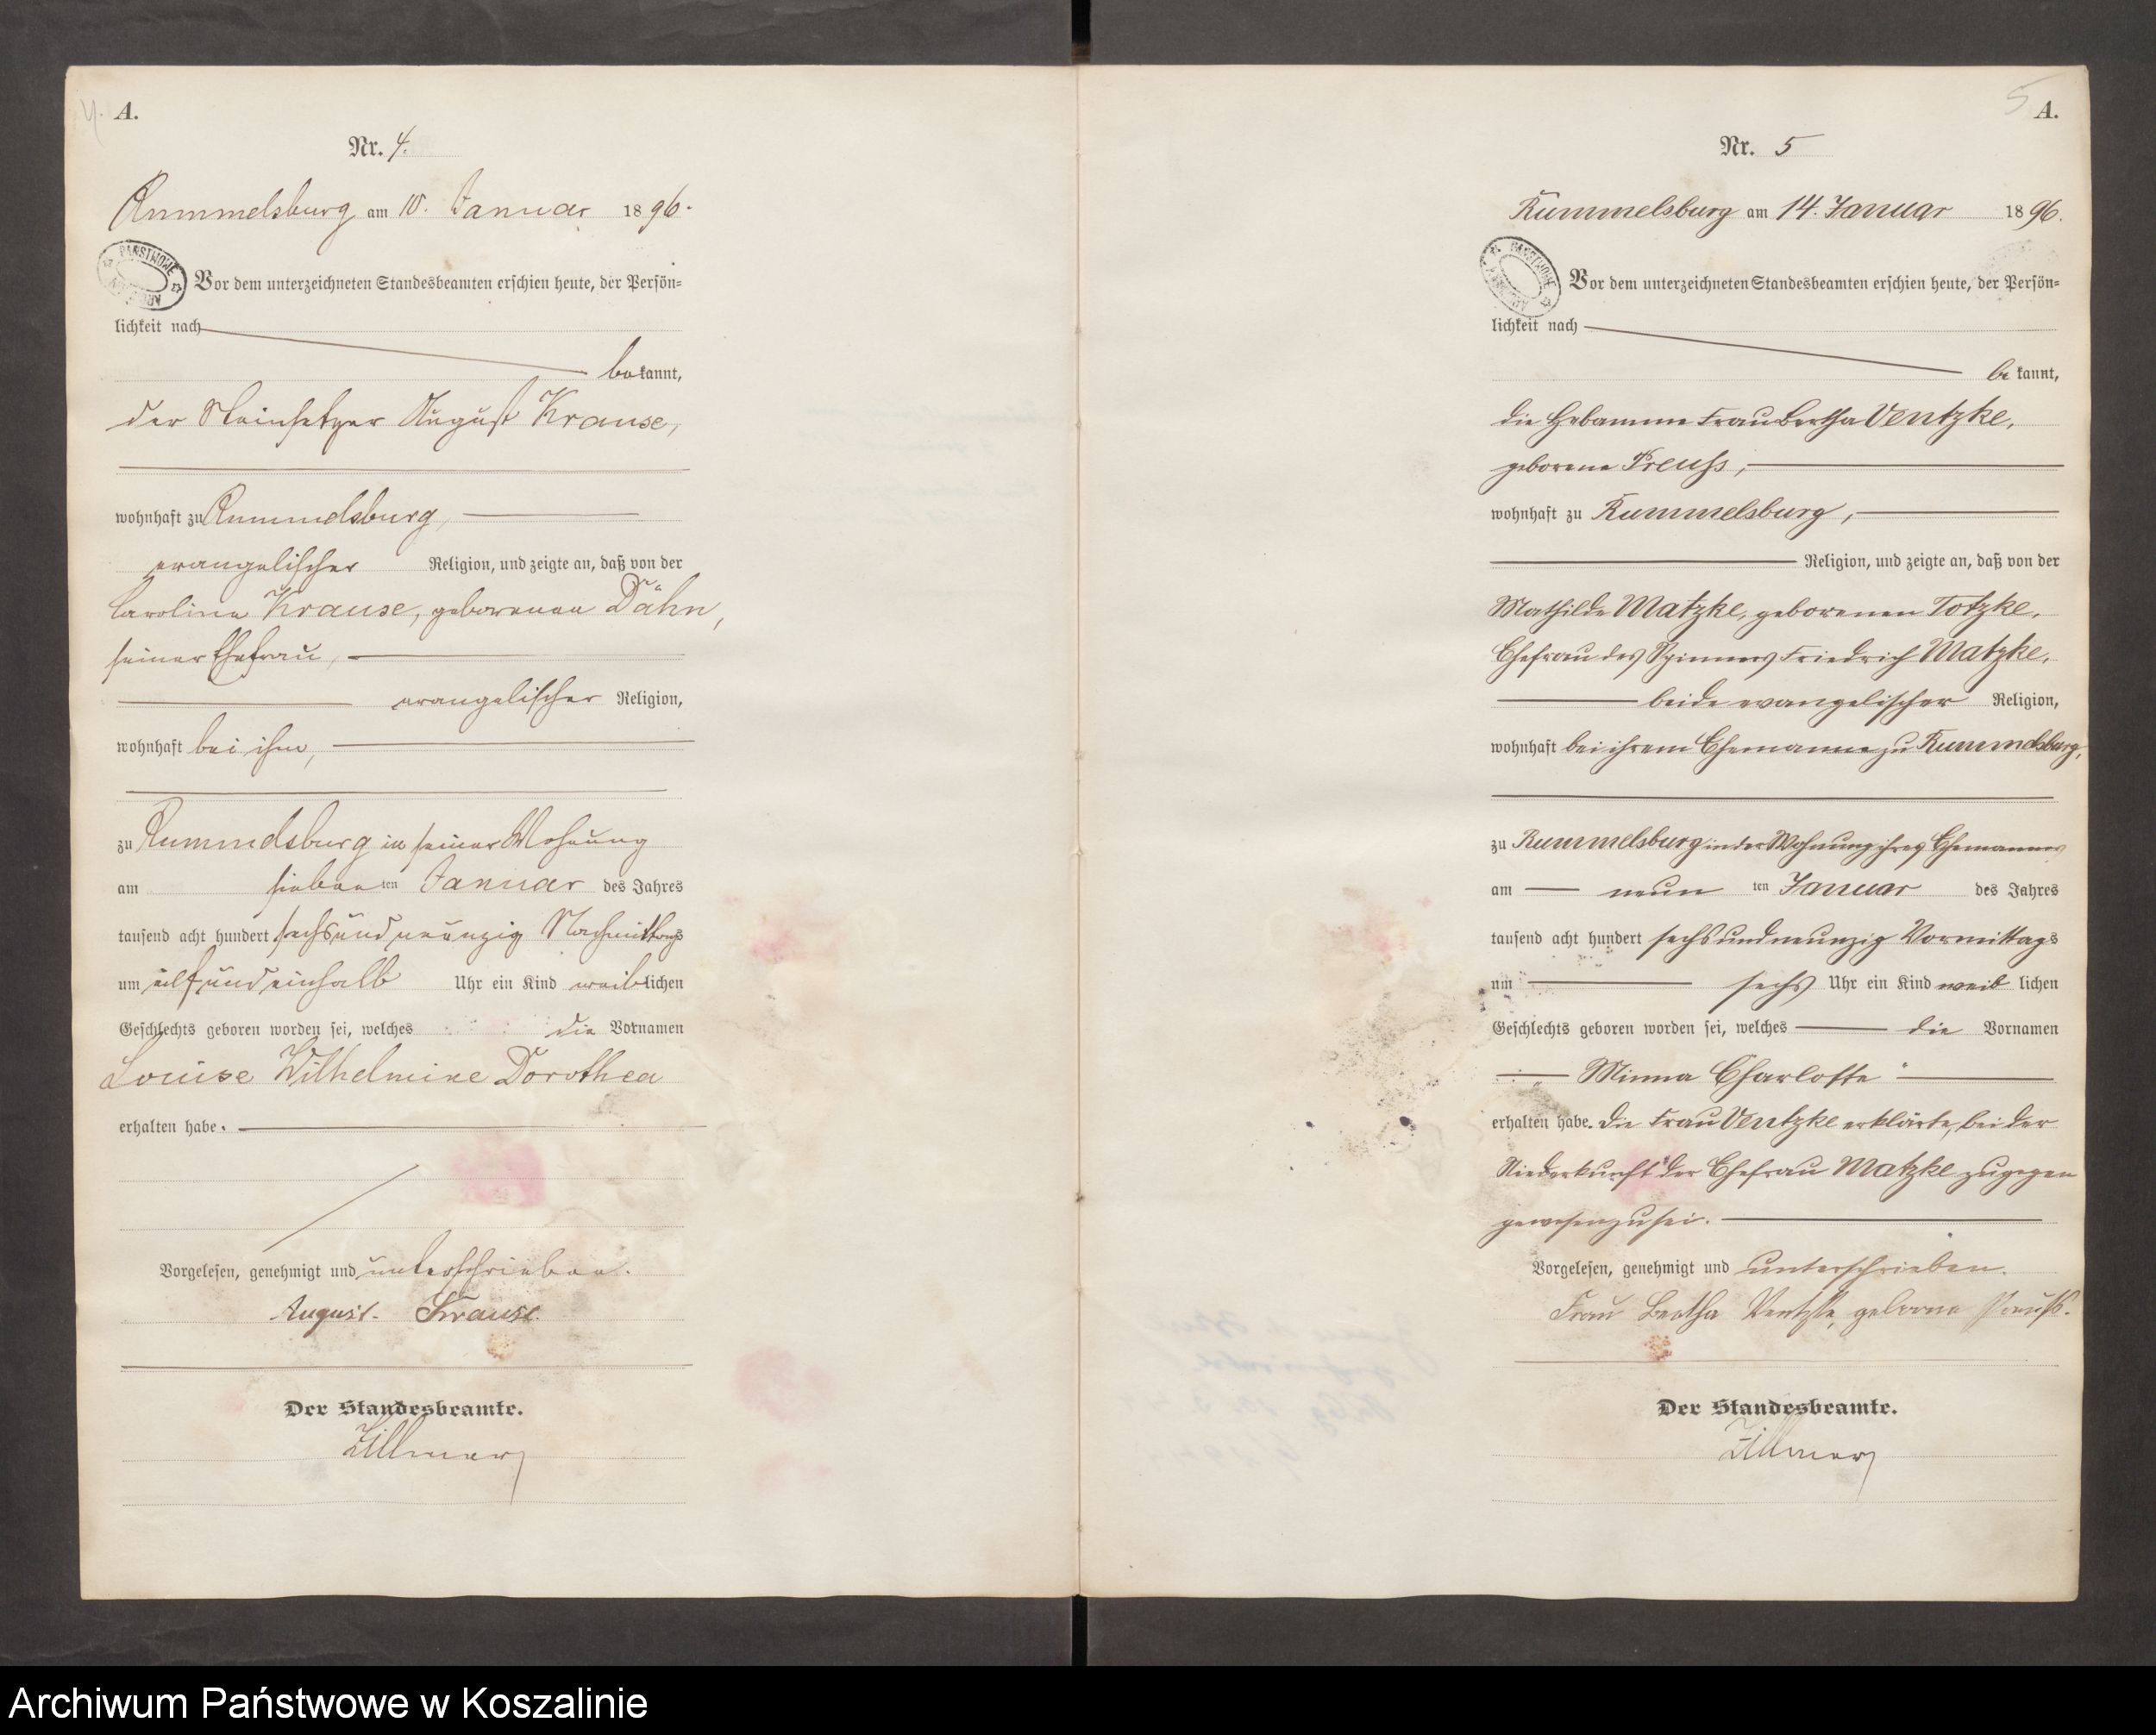 4. A.
Nr. 4.
Rummelsburg am 10. Januar 1896.
PAŃSTWOWE
Vor dem unterzeichneten Standesbeamten erschien heute, der Persön=
lichkeit nach
bekannt,
der Steinsetzer August Krause,
wohnhaft zu Rummelsburg,
evangelischer Religion, und zeigte an, daß von der
Caroline Krause, geborenen Dähn,
seiner Ehefrau,
evangelischer Religion,
wohnhaft bei ihm,
zu Rummelsburg in seiner Wohnung
am siebenten Januar des Jahres
tausend acht hundert sechsundneunzig Nachmittags
um elfundeinhalb Uhr ein Kind weiblichen
Geschlechts geboren worden sei, welches die Vornamen
Louise Wilhelmine Dorothea
erhalten habe.
Vorgelesen, genehmigt und unterschrieben.
August. Krause.
Der Standesbeamte.
Zillmer
5 A.
Nr. 5
Rummelsburg am 14. Januar 1896.
PAŃSTWOWE
Vor dem unterzeichneten Standesbeamten erschien heute, der Persön=
lichkeit nach
bekannt,
die Hebamme Frau Bertha Ventzke,
geborene Preuss,
wohnhaft zu Rummelsburg,
Religion, und zeigte an, daß von der
Mathilde Matzke, geborenen Totzke,
Ehefrau des Spinners Friedrich Matzke,
beide evangelischer Religion,
wohnhaft bei ihrem Ehemanne zu Rummelsburg,
zu Rummelsburg in der Wohnung ihres Ehemannes
am neunten Januar des Jahres
tausend acht hundert sechsundneunzig Vormittags
um sechs Uhr ein Kind weiblichen
Geschlechts geboren worden sei, welches die Vornamen
„Minna Charlotte“
erhalten habe. Die Frau Ventzke erklärte, bei der
Niederkunft der Ehefrau Matzke zugegen
gewesen zu sei.
Vorgelesen, genehmigt und unterschrieben.
Frau Bertha Ventzke, geborne Preuß.
Der Standesbeamte.
Zillmer
Archiwum Państwowe w Koszalinie